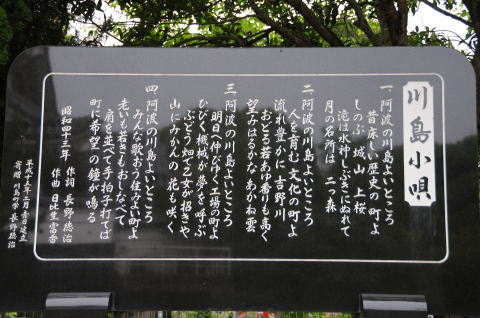 川島小唄
一、阿波の川島よいところ
昔床しい歴史の町よ
しのぶ 城山 上桜
滝は水神しぶきにぬれて
月の名所は 二つ森
二、阿波の川島よいところ
人を育む 文化の町よ
流れ豊かに 吉野川
おとる若あゆ香りも高く
望みはるかな あかね雲
三、阿波の川島よいところ
明日へ伸びゆく 工場の町よ
ひびく機械が夢を呼ぶ
ぶどう畑で乙女が招きや
山にみかんの 花も咲く
四、阿波の川島よいところ
みんな歌おう 住みよい町よ
老いも若きもおしなべて
肩を並べて手拍子打てば
町に希望の 鐘が鳴る
昭和四十三年 作詞 長野徳治
作曲 日比生富香
平成十五年三月吉日建立
寄贈 川島町学 長野徳治